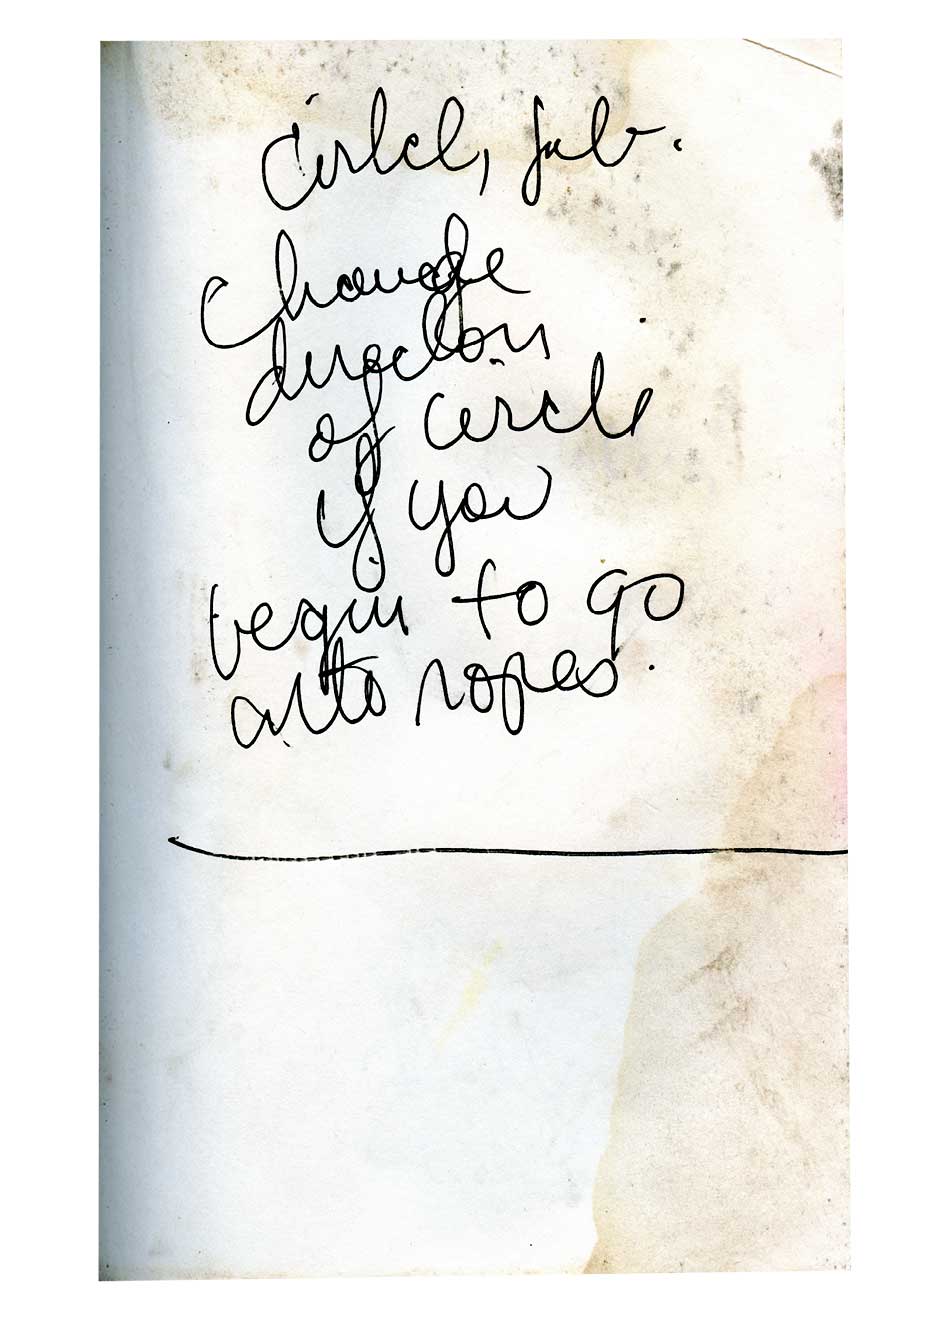 Circle, jab.
Change
direction
of circle
if you
begin to go
into ropes.